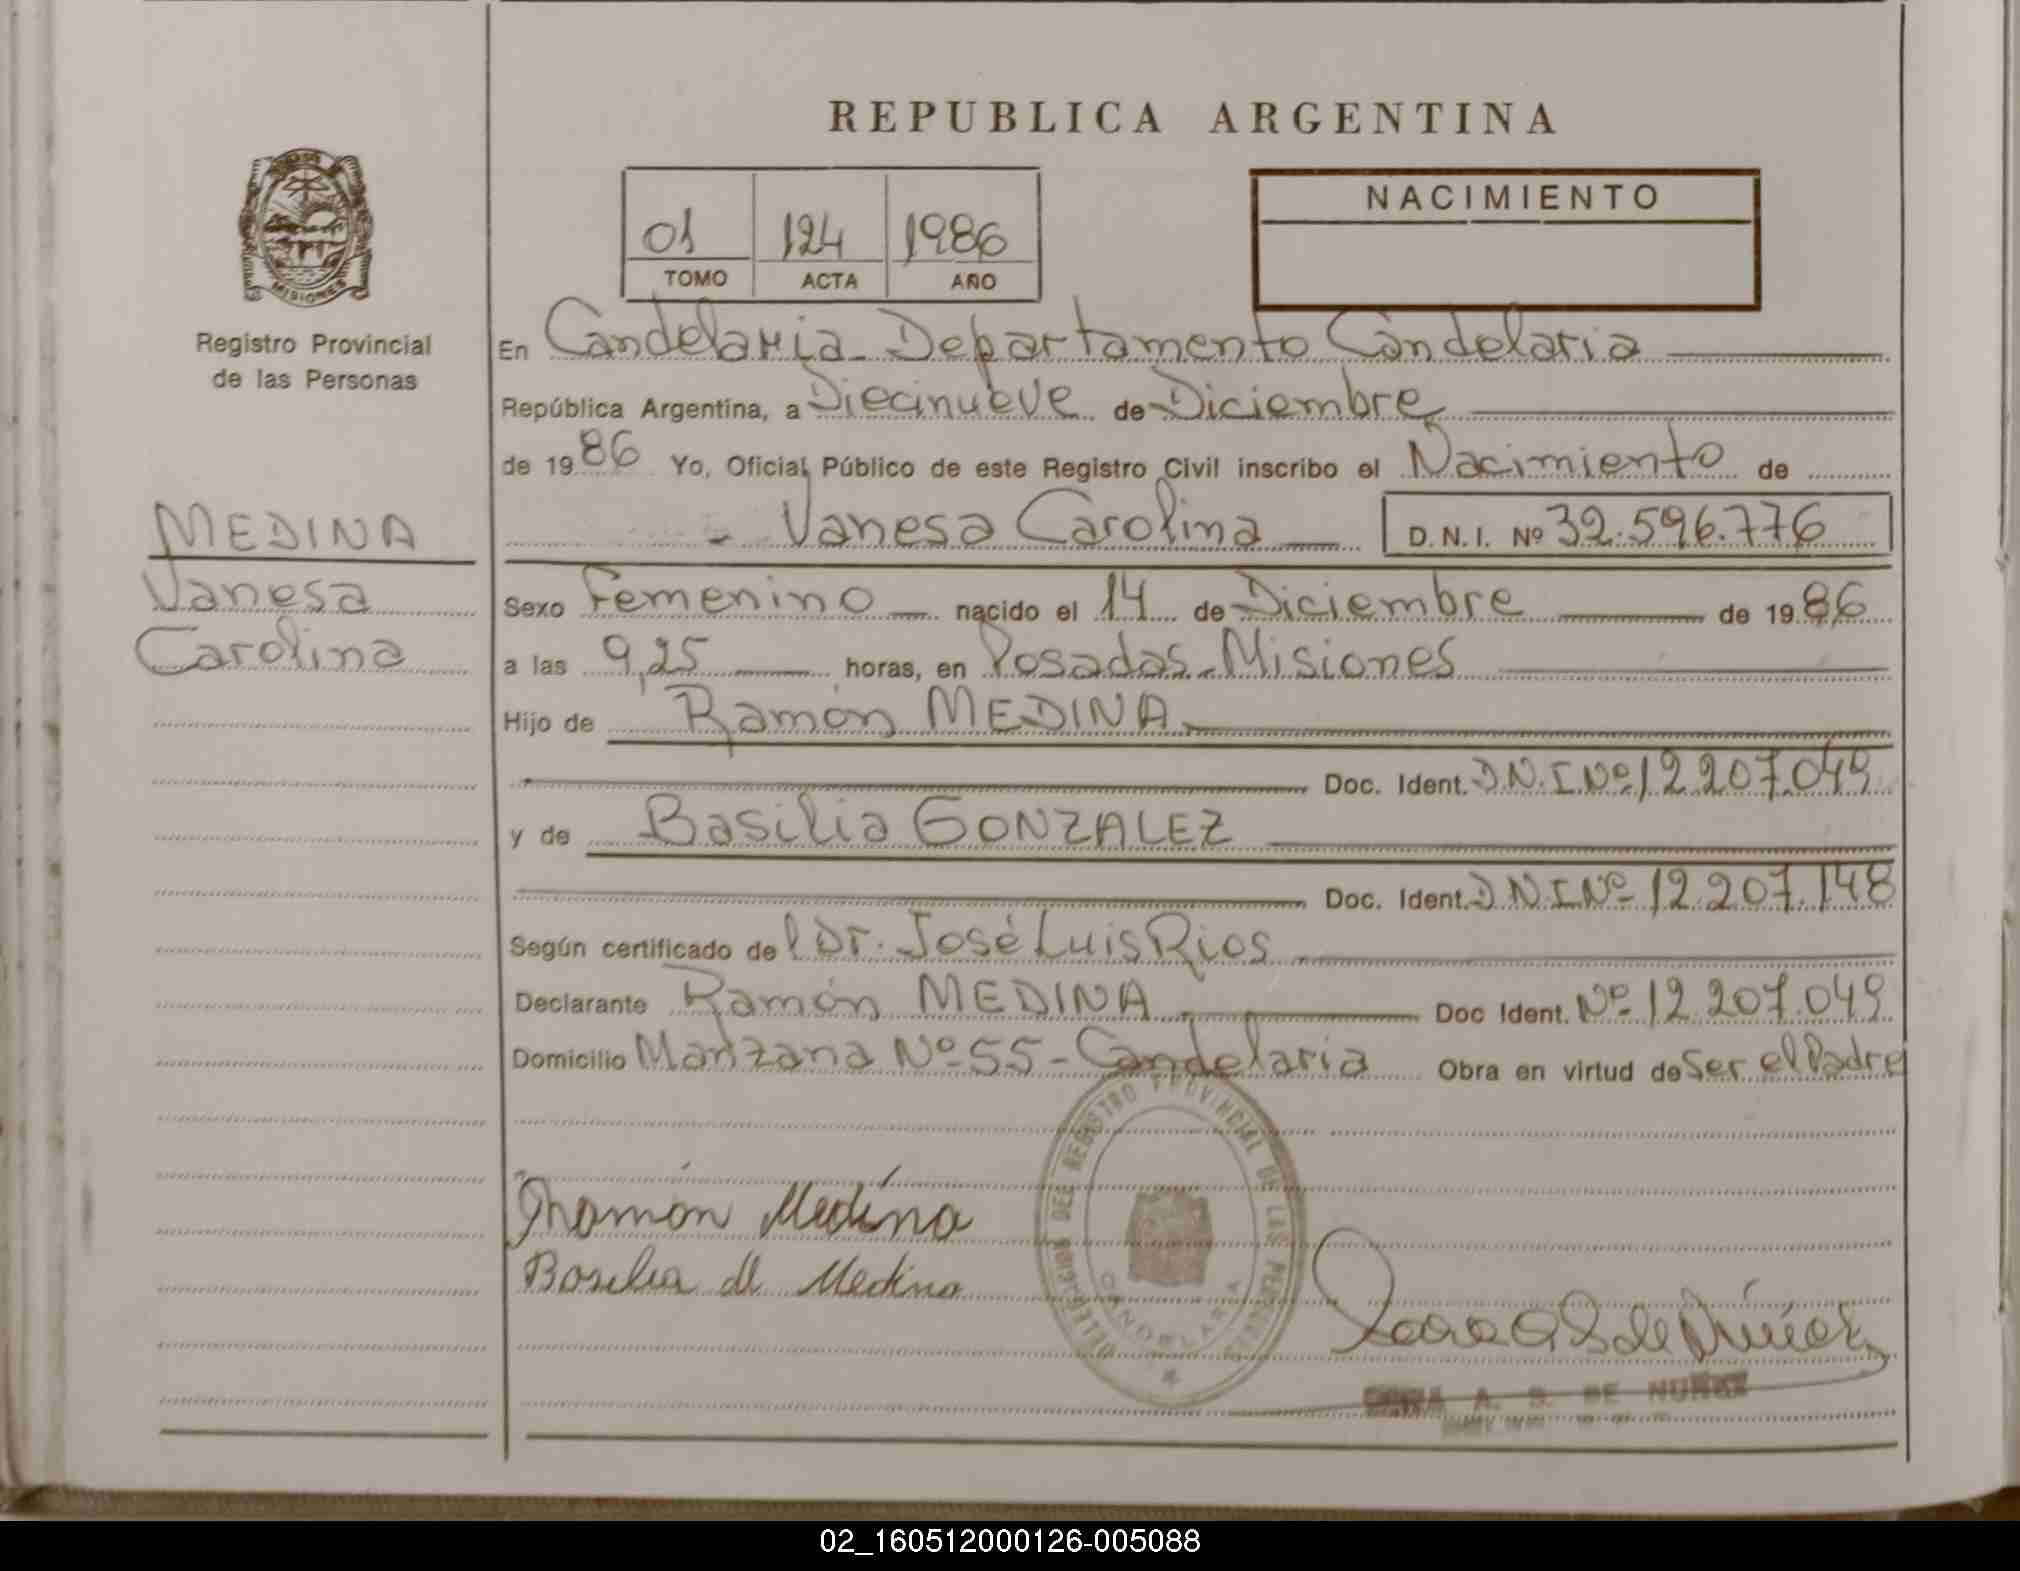 REPUBLICA ARGENTINA
01 124 1986
TOMO ACTA AÑO
NACIMIENTO
MISIONES
Registro Provincial
de las Personas
MEDINA
Vanesa
Carolina
En Candelaria - Departamento Candelaria
República Argentina, a Diecinueve de Diciembre
de 1986 Yo, Oficial Público de este Registro Civil inscribo el Nacimiento de
- Vanesa Carolina D.N.I. Nº 32.596.776
Sexo Femenino nacido el 14 de Diciembre de 1986
a las 9,25 horas, en Posadas - Misiones
Hijo de Ramón MEDINA
Doc. Ident. D.N.I.Nº 12.207.049
y de Basilia GONZALEZ
Doc. Ident. D.N.I.Nº 12.207.148
Según certificado del Dr. José Luis Rios
Declarante Ramón MEDINA Doc Ident. Nº 12.207.049
Domicilio Manzana Nº 55 - Candelaria Obra en virtud de ser el Padre
DEL REGISTRO PROVINCIAL DE LAS
CANDELARIA
Ramón Medina
Basilia de Medina
A. S. DE NUÑEZ
02_160512000126-005088